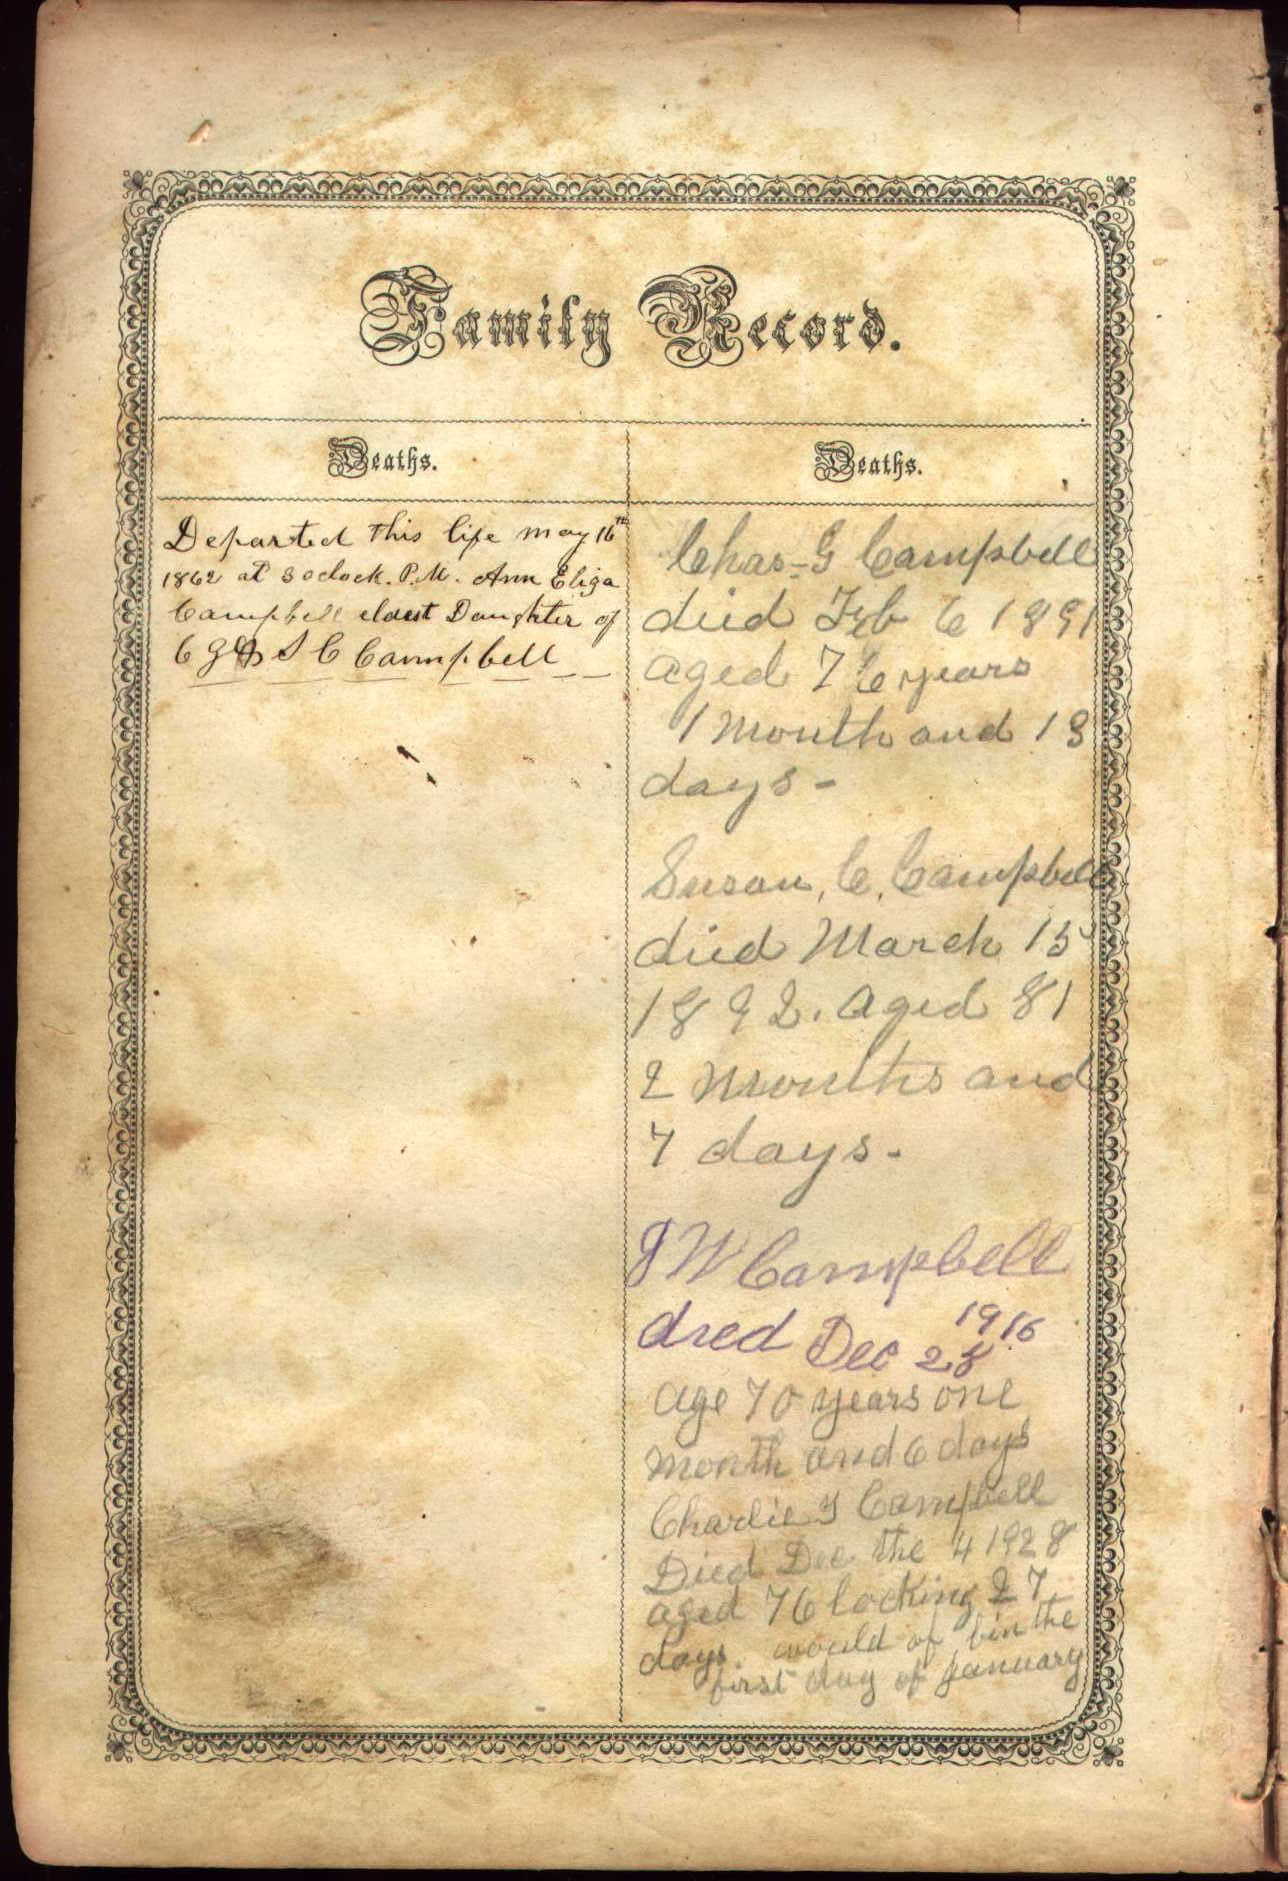 Family Record.
Deaths.
Departed this life may 16th
1862 at 3 oclock. P.M. Ann Eliza
Campbell eldest Daughter of
C G & S C Campbell
Deaths.
Chas. G Campbell
died Feb 6 1891
aged 76 years
1 month and 18
days -
Susan, C, Campbell
died March 15
1892. aged 81
2 months and
7 days -
J W Campbell
died Dec 28 1916
age 70 years one
month and 6 days
Charlie Campbell
Died Dec the 4 1928
aged 76 locking 27
days. would of bin the
first day of January